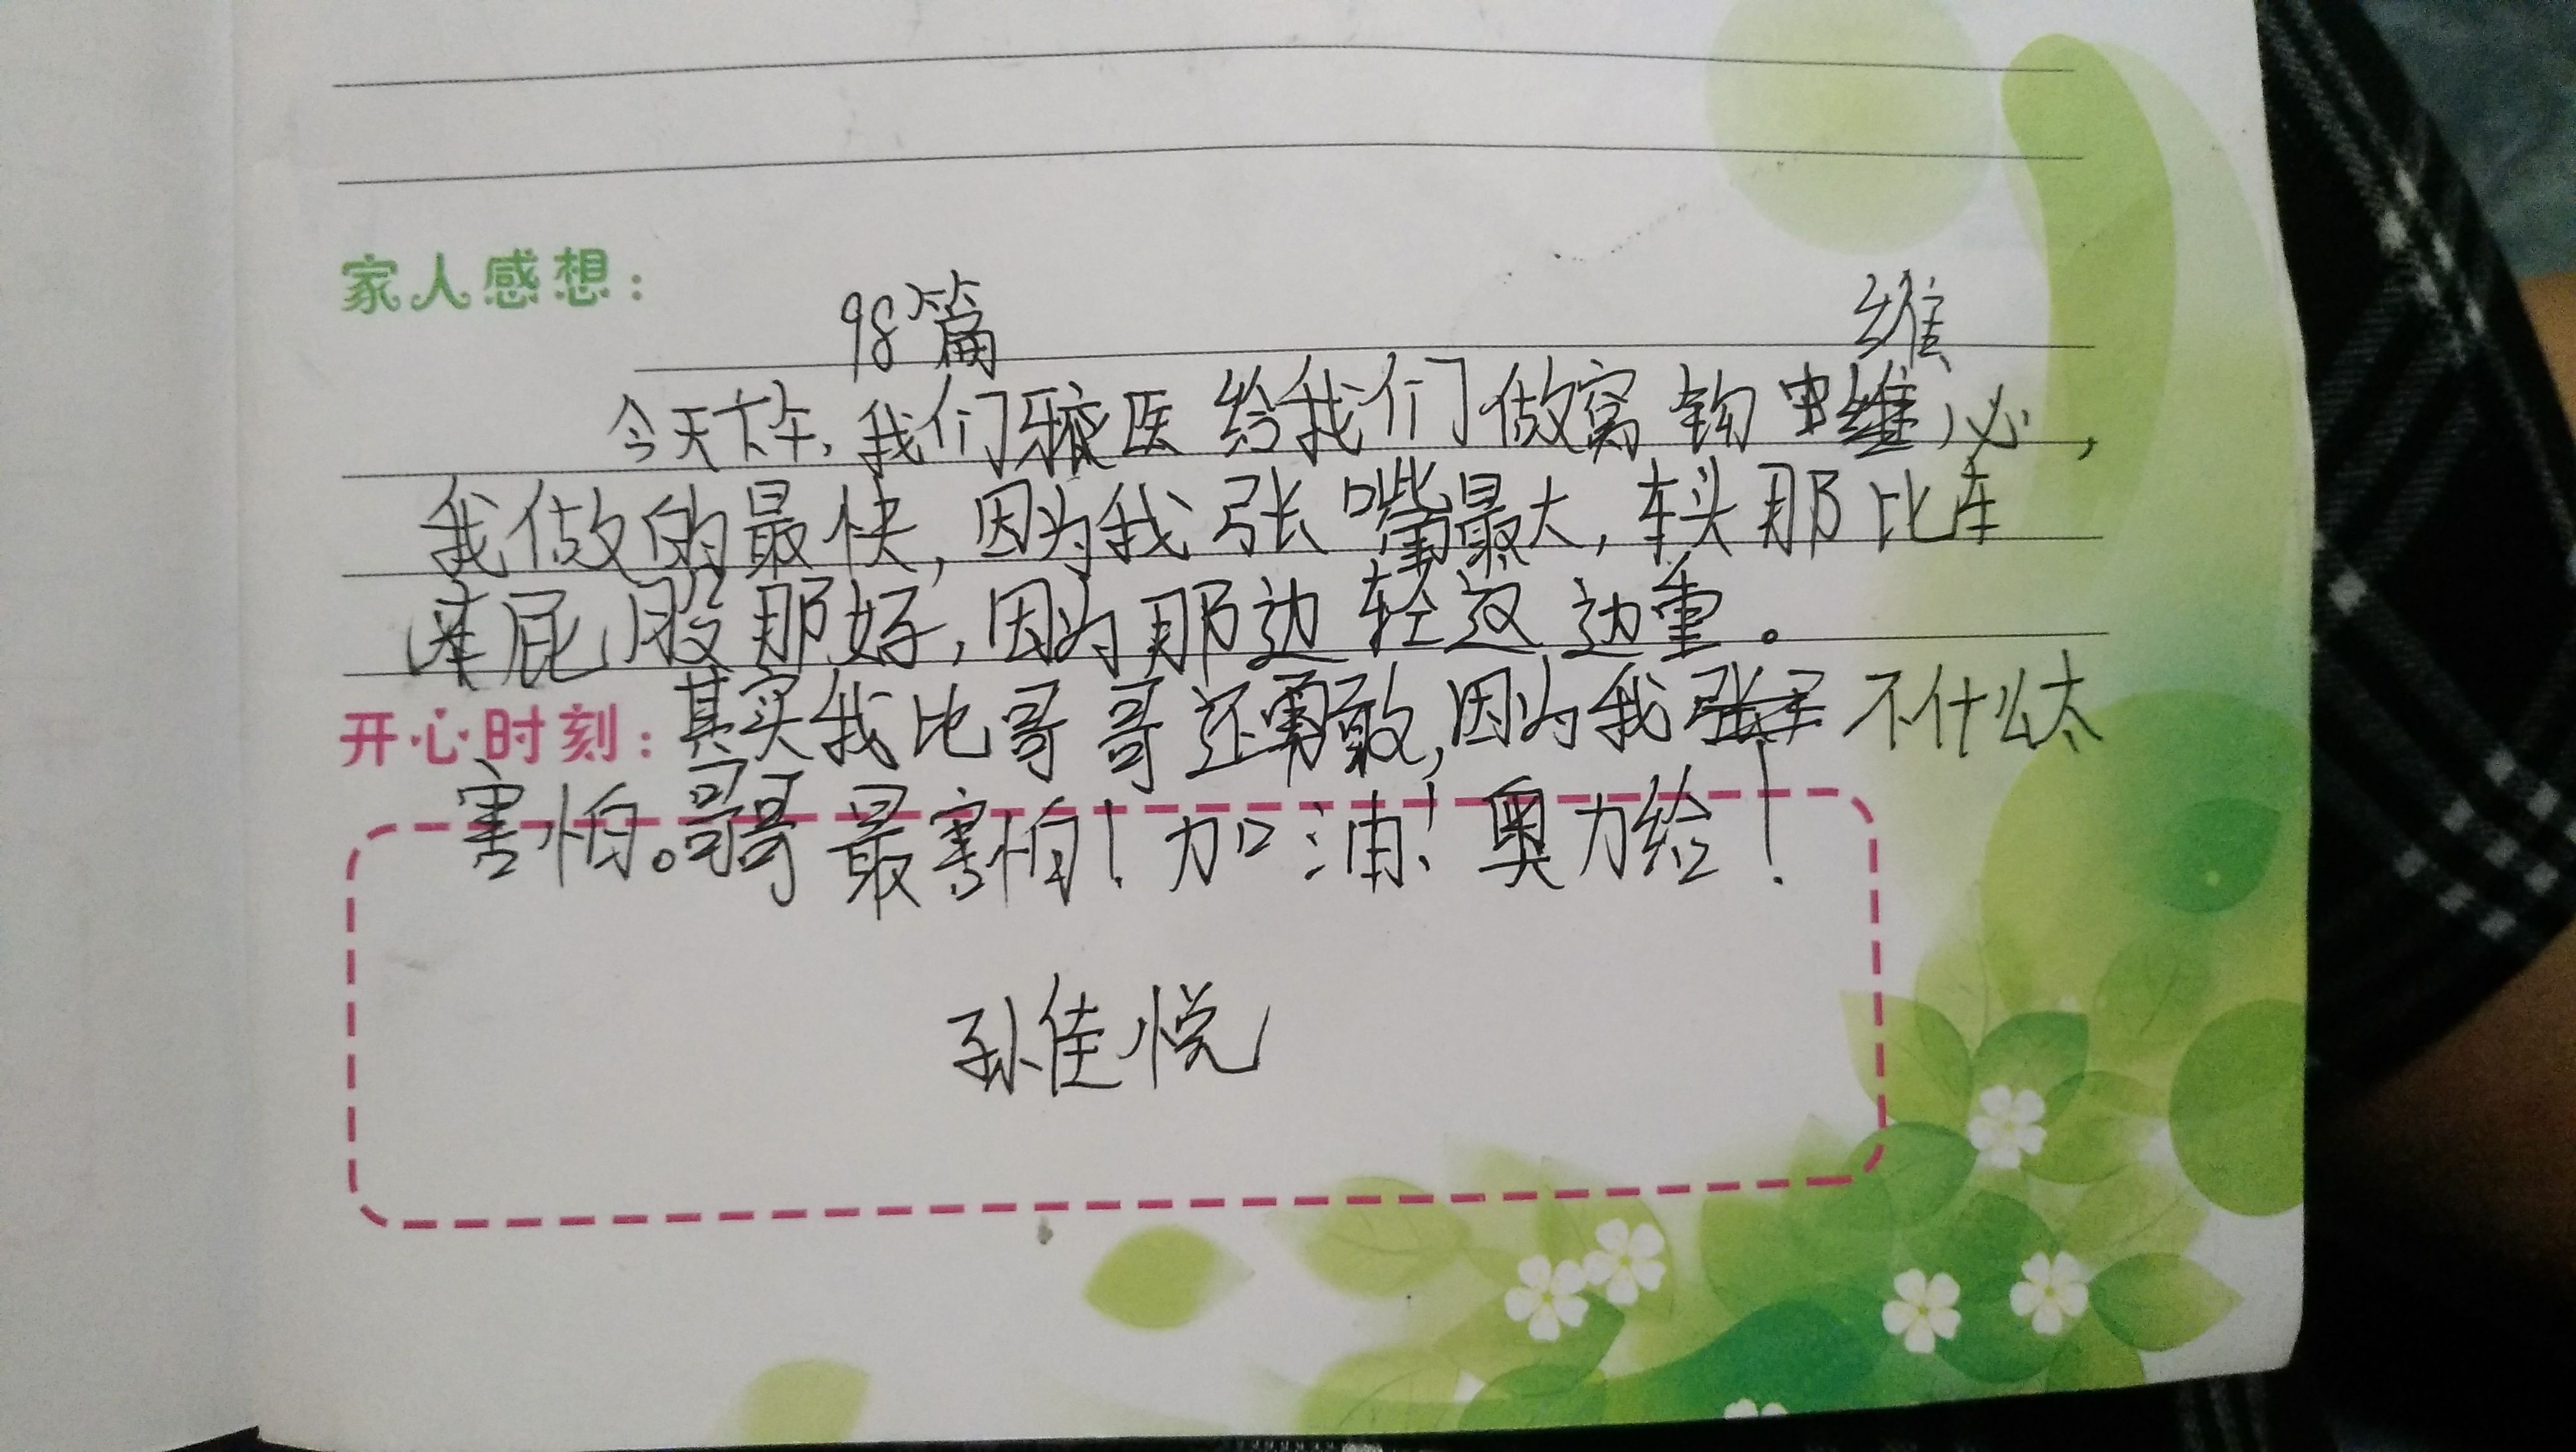 家人感想：
98篇
维
今天下午，我们牙医给我们做窝沟
我做的最快，因为我张嘴最大，车头那比车
屁股那好，因为那边轻这边重。
开心时刻：其实我比哥哥还勇敢，因为我不什么太
害怕。哥哥最害怕！加油！奥力给！
孙佳悦